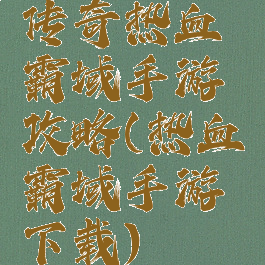 传奇热血
霸域手游
攻略(热血
霸域手游
下载)